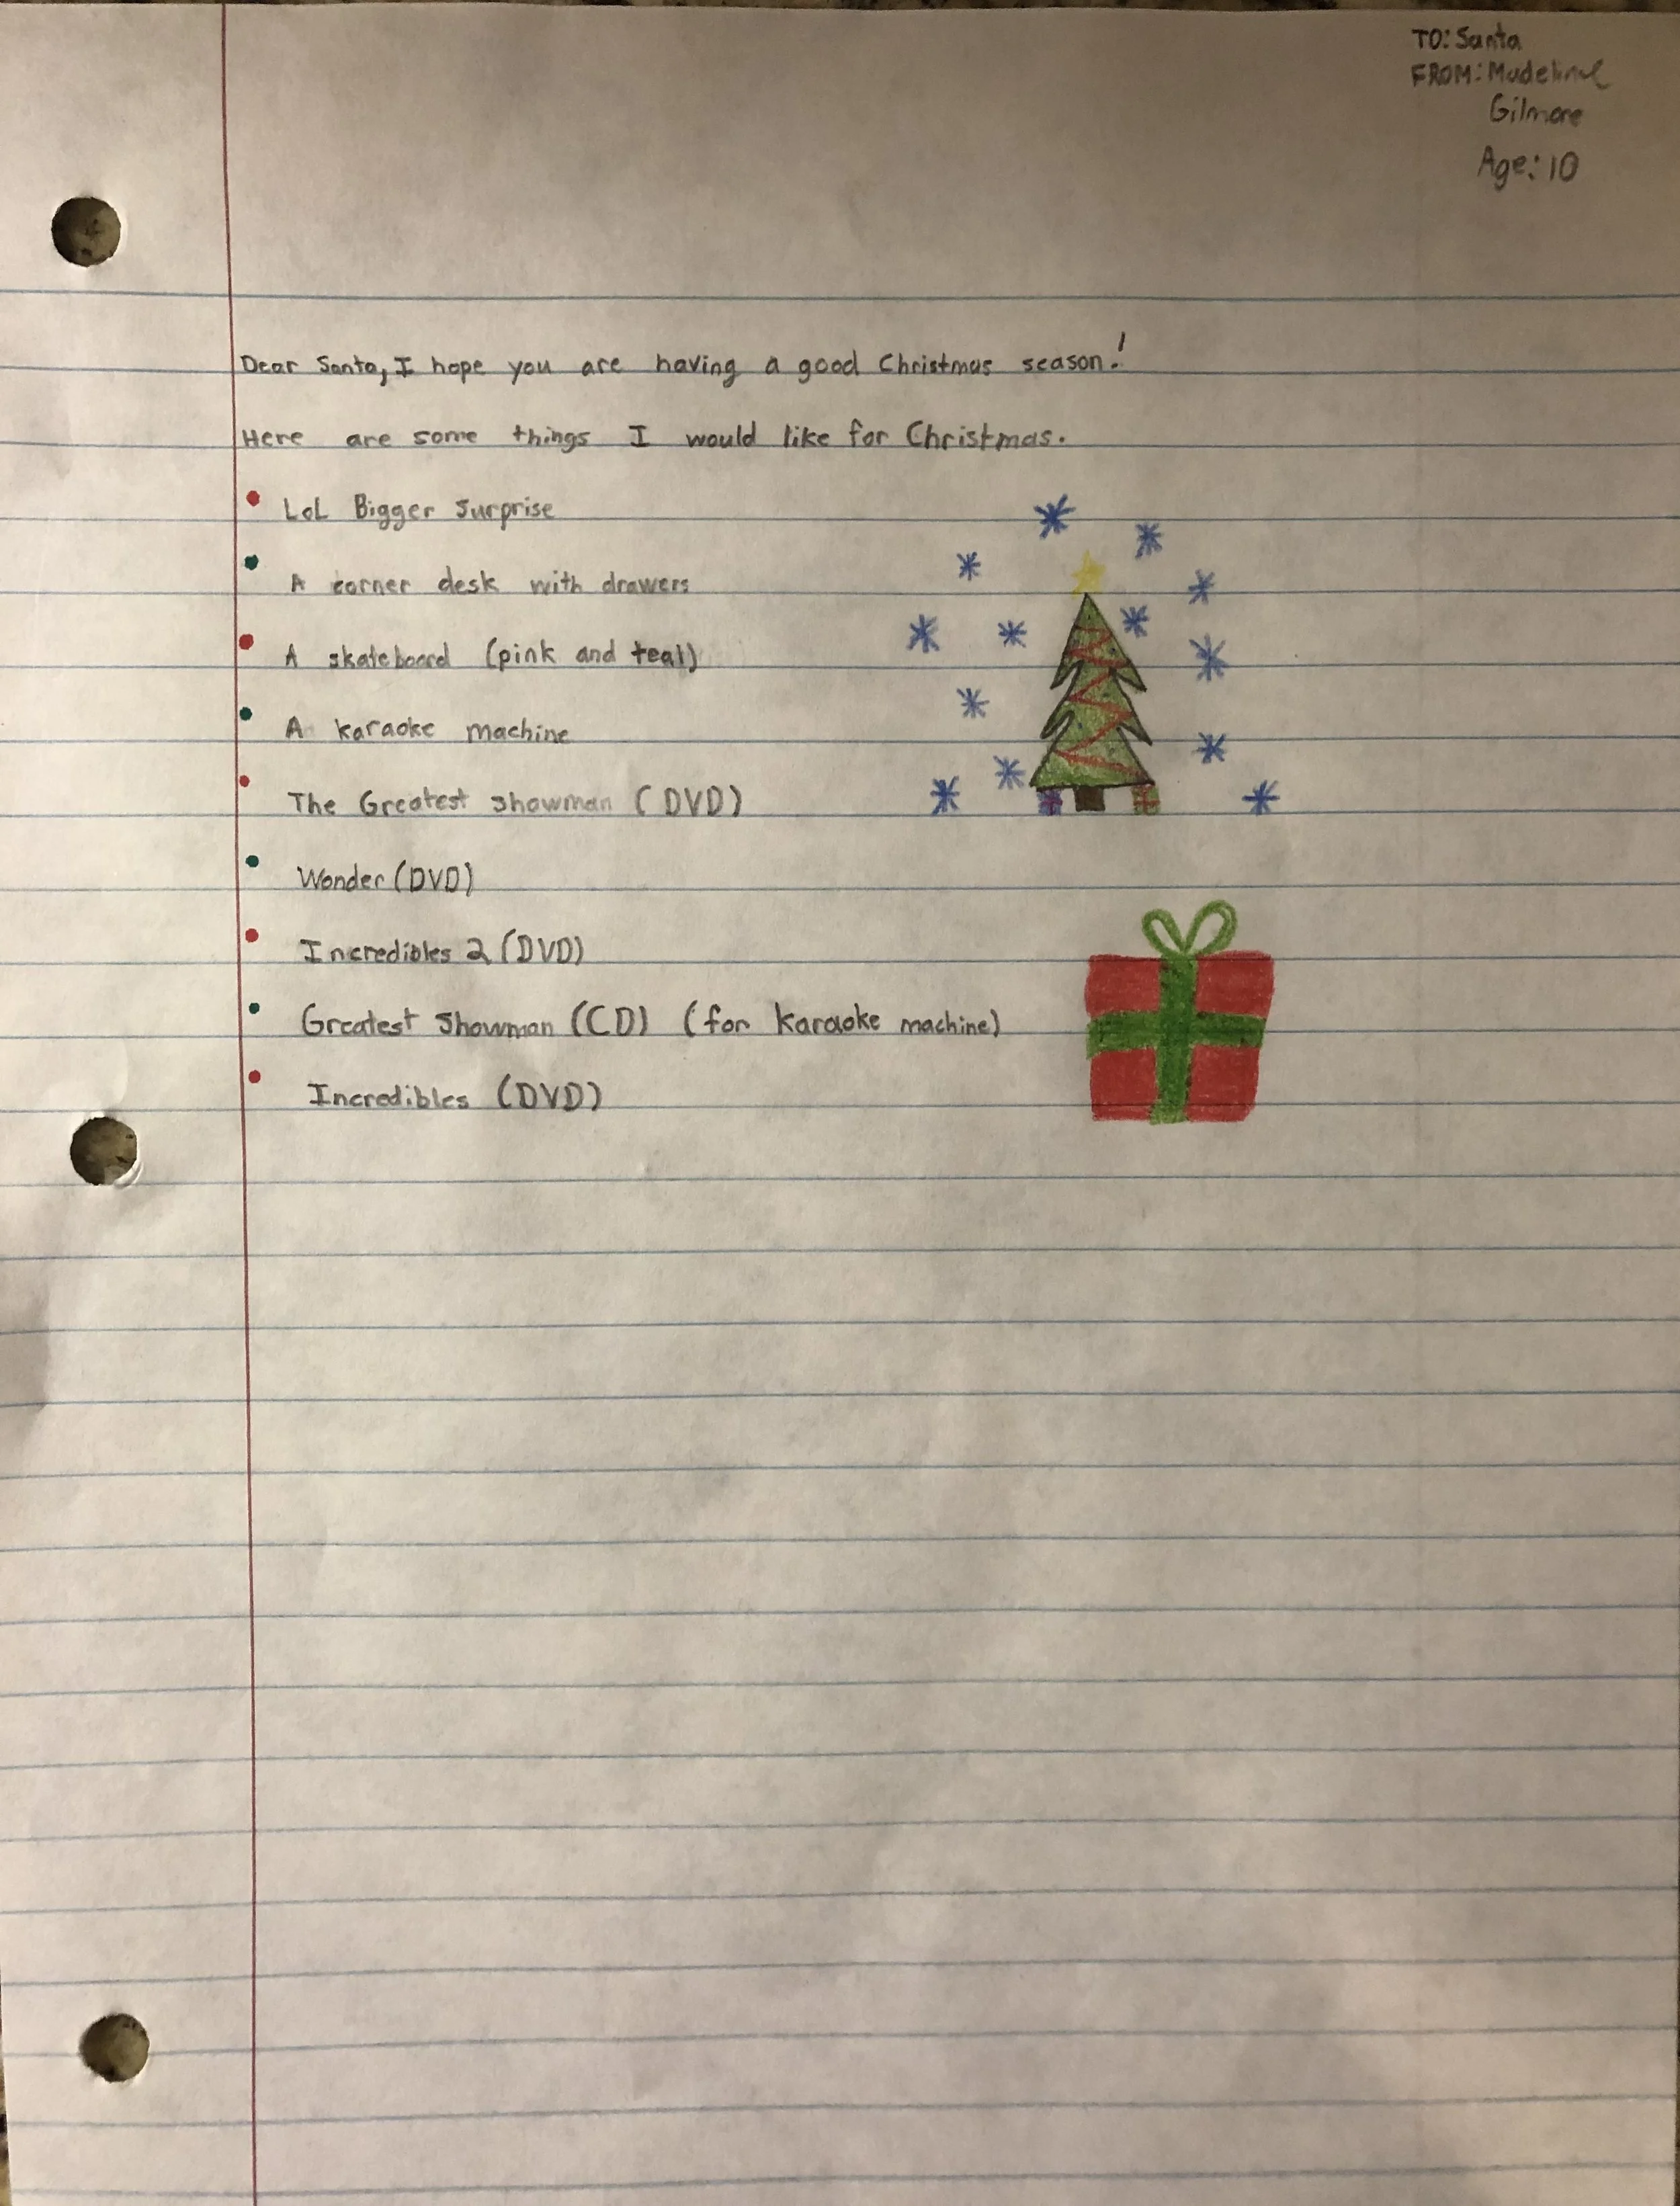 TO: Santa
FROM: Madeline
Gilmore
Age: 10
Dear Santa, I hope you are having a good Christmas season!
Here are some things I would like for Christmas.
• LoL Bigger Surprise
• A corner desk with drawers
• A skateboard (pink and teal)
• A karaoke machine
• The Greatest Showman (DVD)
• Wonder (DVD)
• Incredibles 2 (DVD)
• Greatest Showman (CD) (for karaoke machine)
• Incredibles (DVD)